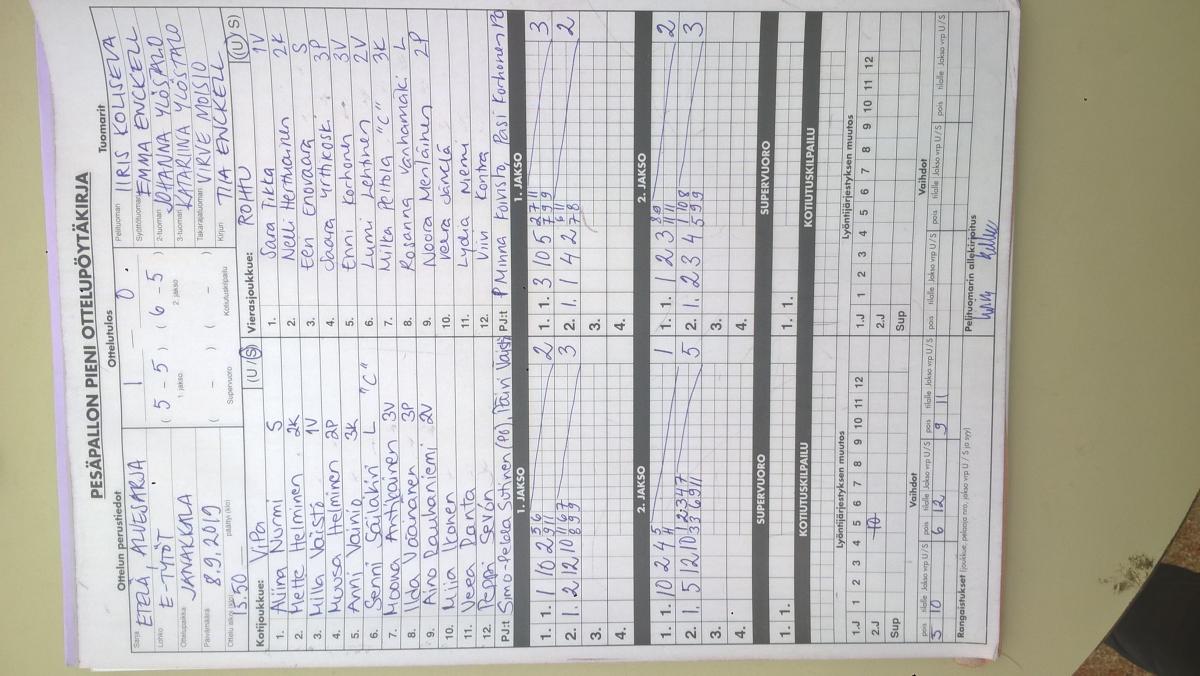 PESÄPALLON PIENI OTTELUPÖYTÄKIRJA
Ottelun perustiedot
Sarja ETELÄ, ALUESARJA
Lohko E-TYTÖT
Ottelupaikka JANAKKALA
Päivämäärä 8.9.2019
Ottelu alkoi (klo) 13.50 päättyi (klo)
Ottelutulos
1 - 0
( 5 - 5 ) ( 6 - 5 )
1. jakso 2. jakso
( - ) ( - )
Supervuoro Kotiutuskilpailu
Tuomarit
Pelituomari IIRIS KOLISEVA
Syöttötuomari EMMA ENCKELL
2-tuomari JOHANNA YLÖSTALO
3-tuomari KATARIINA YLÖSTALO
Takarajatuomari VIRVE MOISIO
Kirjuri TIIA ENCKELL
Kotijoukkue: ViPa (U/S)
1. Aliina Nurmi S
2. Mette Helminen 2K
3. Milla Vaistö 1V
4. Muusa Helminen 2P
5. Anni Vainio 3K
6. Senni Sailakivi L "C"
7. Moona Anttkainen 3V
8. Iida Väänänen 3P
9. Aino Rauhaniemi 2V
10. Miia Ikonen
11. Veea Ranta
12. Peppi Sevón
PJ:t Simo-Pekka Sutinen (Pö), Päivi Vaistö
Vierasjoukkue: ROHTU (U/S)
1. Sara Tikka 1V
2. Nelli Herttuainen 2K
3. Eeri Enovaara S
4. Saara Yrttikoski 3P
5. Enni Korhonen 3V
6. Lumi Lehtinen 2V
7. Milka Peltola "C" 3K
8. Rosanna Vanhamäki L
9. Noora Meriläinen 2P
10. Veera Jänelä
11. Lydia Niemi
12. Viivi Kontra
PJ:t P Minna Koivisto, Pasi Korhonen Pö
1. JAKSO
1. 1. 1 10 2 2
2. 1. 2 12 10 3
3.
4.
1. JAKSO
1. 1. 3 10 5 3
2. 1. 1 4 2 2
3.
4.
2. JAKSO
1. 1. 10 2 4 1
2. 1. 5 12 10 5
3.
4.
2. JAKSO
1. 1. 1 2 3 2
2. 1. 2 3 4 3
3.
4.
SUPERVUORO
1. 1.
KOTIUTUSKILPAILU
SUPERVUORO
1. 1.
KOTIUTUSKILPAILU
Lyöntijärjestyksen muutos
1.J 1 2 3 4 5 6 7 8 9 10 11 12
2.J 10
Sup
Lyöntijärjestyksen muutos
1.J 1 2 3 4 5 6 7 8 9 10 11 12
2.J
Sup
Vaihdot
pois tilalle Jakso vrp U/S pois tilalle Jakso vrp U/S pois tilalle Jakso vrp U/S
3 10 6 12 9 11
Vaihdot
pois tilalle Jakso vrp U/S pois tilalle Jakso vrp U/S pois tilalle Jakso vrp U/S
Rangaistukset (joukkue, pelaaja nro, jakso vrp U / S ja syy)
Pelituomarin allekirjoitus